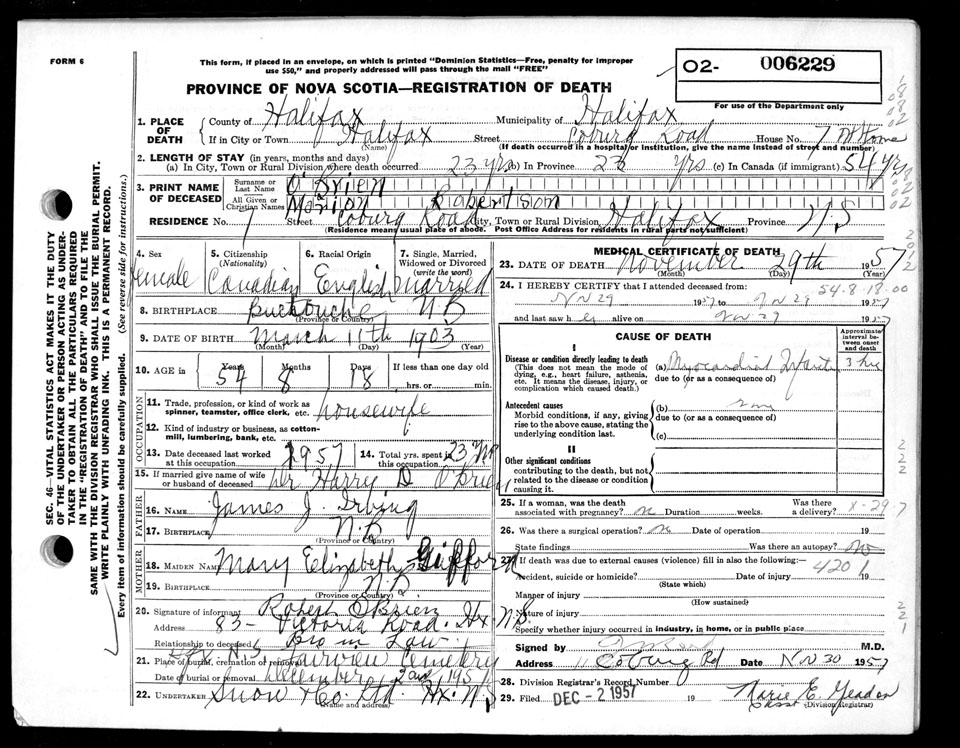 FORM 6
This form, if placed in an envelope, on which is printed "Dominion Statistics—Free, penalty for improper
use $50," and properly addressed will pass through the mail "FREE"
O2- 006229
For use of the Department only
PROVINCE OF NOVA SCOTIA—REGISTRATION OF DEATH
1. PLACE OF DEATH
County of Halifax Municipality of Halifax
If in City or Town Halifax Street Coburg Road House No. 7 at Home
(Name) (If death occurred in a hospital or institution, give the name instead of street and number)
2. LENGTH OF STAY (in years, months and days)
(a) In City, Town or Rural Division where death occurred 23 yrs (b) In Province 23 yrs (c) In Canada (if immigrant) 54 yrs
3. PRINT NAME OF DECEASED
Surname or Last Name O'Brien
All Given or Christian Names Marion Robertson
RESIDENCE No. 7 Street Coburg Road City, Town or Rural Division Halifax Province N.S
(Residence means usual place of abode. Post Office Address for residents in rural parts not sufficient)
4. Sex female
5. Citizenship (Nationality) Canadian
6. Racial Origin English
7. Single, Married, Widowed or Divorced (write the word) married
8. BIRTHPLACE Buctouche N.B
(Province or Country)
9. DATE OF BIRTH March 11th 1903
(Month) (Day) (Year)
10. AGE in Years 54 Months 8 Days 18 If less than one day old
hrs. or min.
OCCUPATION
11. Trade, profession, or kind of work as spinner, teamster, office clerk, etc. housewife
12. Kind of industry or business, as cotton-mill, lumbering, bank, etc.
13. Date deceased last worked at this occupation 1957
14. Total yrs. spent in this occupation 23 yrs
15. If married give name of wife or husband of deceased Mr Harry D O'Brien
FATHER
16. Name James J. Irving
17. Birthplace N.B
(Province or Country)
MOTHER
18. MAIDEN NAME Mary Elizabeth
19. BIRTHPLACE N.B
(Province or Country)
20. Signature of informant Robert O'Brien
Address 83- Victoria Road. Hx. N.S.
Relationship to deceased Bro in Law
21. Place of burial, cremation or removal Fairview Cemetery
Date of burial or removal December 2nd 1957
22. UNDERTAKER Snow & Co Ltd. Hx. N.S
(Name and address)
MEDICAL CERTIFICATE OF DEATH
23. DATE OF DEATH November 29th 1957
(Month) (Day) (Year)
24. I HEREBY CERTIFY that I attended deceased from:
54-8-18-00
Nov 29 1957 to Nov 29 1957
and last saw her alive on Nov 29 1957
CAUSE OF DEATH
Approximate interval between onset and death
I
Disease or condition directly leading to death
(This does not mean the mode of dying, e.g., heart failure, asthenia, etc. It means the disease, injury, or complication which caused death.)
(a) Myocardial Infarct 3 hrs
due to (or as a consequence of)
Antecedent causes
Morbid conditions, if any, giving rise to the above cause, stating the underlying condition last.
(b)
due to (or as a consequence of)
(c)
II
Other significant conditions
contributing to the death, but not related to the disease or condition causing it.
25. If a woman, was the death associated with pregnancy? no Duration weeks. Was there a delivery?
26. Was there a surgical operation? no Date of operation 19
State findings Was there an autopsy? No
27. If death was due to external causes (violence) fill in also the following:—
4201
Accident, suicide or homicide? Date of injury 19
(State which)
Manner of injury
(How sustained)
Nature of injury
Specify whether injury occurred in industry, in home, or in public place
Signed by M.D.
Address 11 Coburg Rd Date Nov 30 1957
28. Division Registrar's Record Number
29. Filed DEC - 2 1957 19 Marie E. Yeadon
Asst (Division Registrar)
SEC. 46—VITAL STATISTICS ACT MAKES IT THE DUTY
OF THE UNDERTAKER OR PERSON ACTING AS UNDER-
TAKER TO OBTAIN ALL THE PARTICULARS REQUIRED
IN THE "REGISTRATION OF DEATH" AND TO FILE THE
SAME WITH THE DIVISION REGISTRAR WHO SHALL ISSUE THE BURIAL PERMIT.
WRITE PLAINLY WITH UNFADING INK. THIS IS A PERMANENT RECORD.
Every item of information should be carefully supplied. (See reverse side for instructions.)